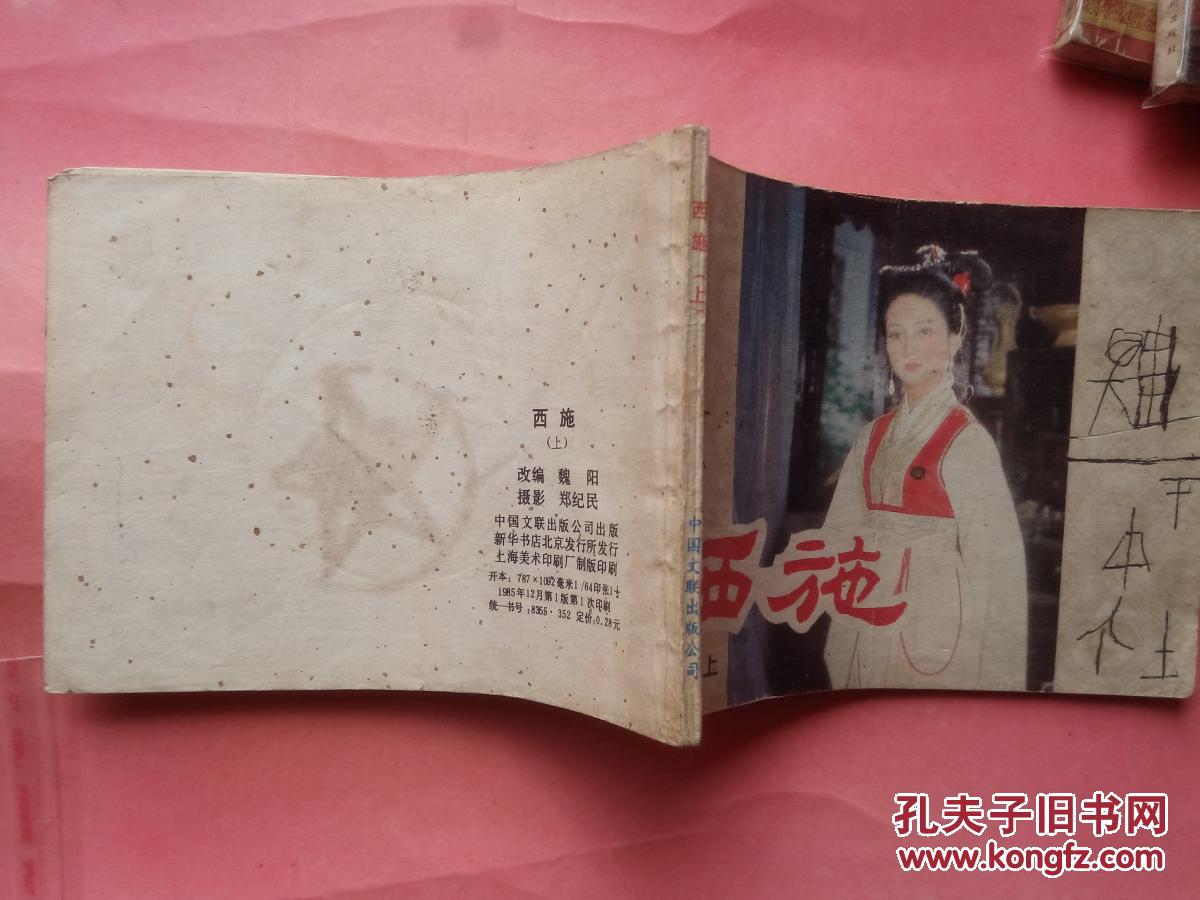 西施
(上)
改编 魏 阳
摄影 郑纪民
中国文联出版公司出版
新华书店北京发行所发行
上海美术印刷厂制版印刷
开本:787×1092毫米1/64印张1½
1985年12月第1版第1次印刷
统一书号:8355·352 定价:0.28元
西施(上)
中国文联出版公司
西施
上
下
孔夫子旧书网
www.kongfz.com